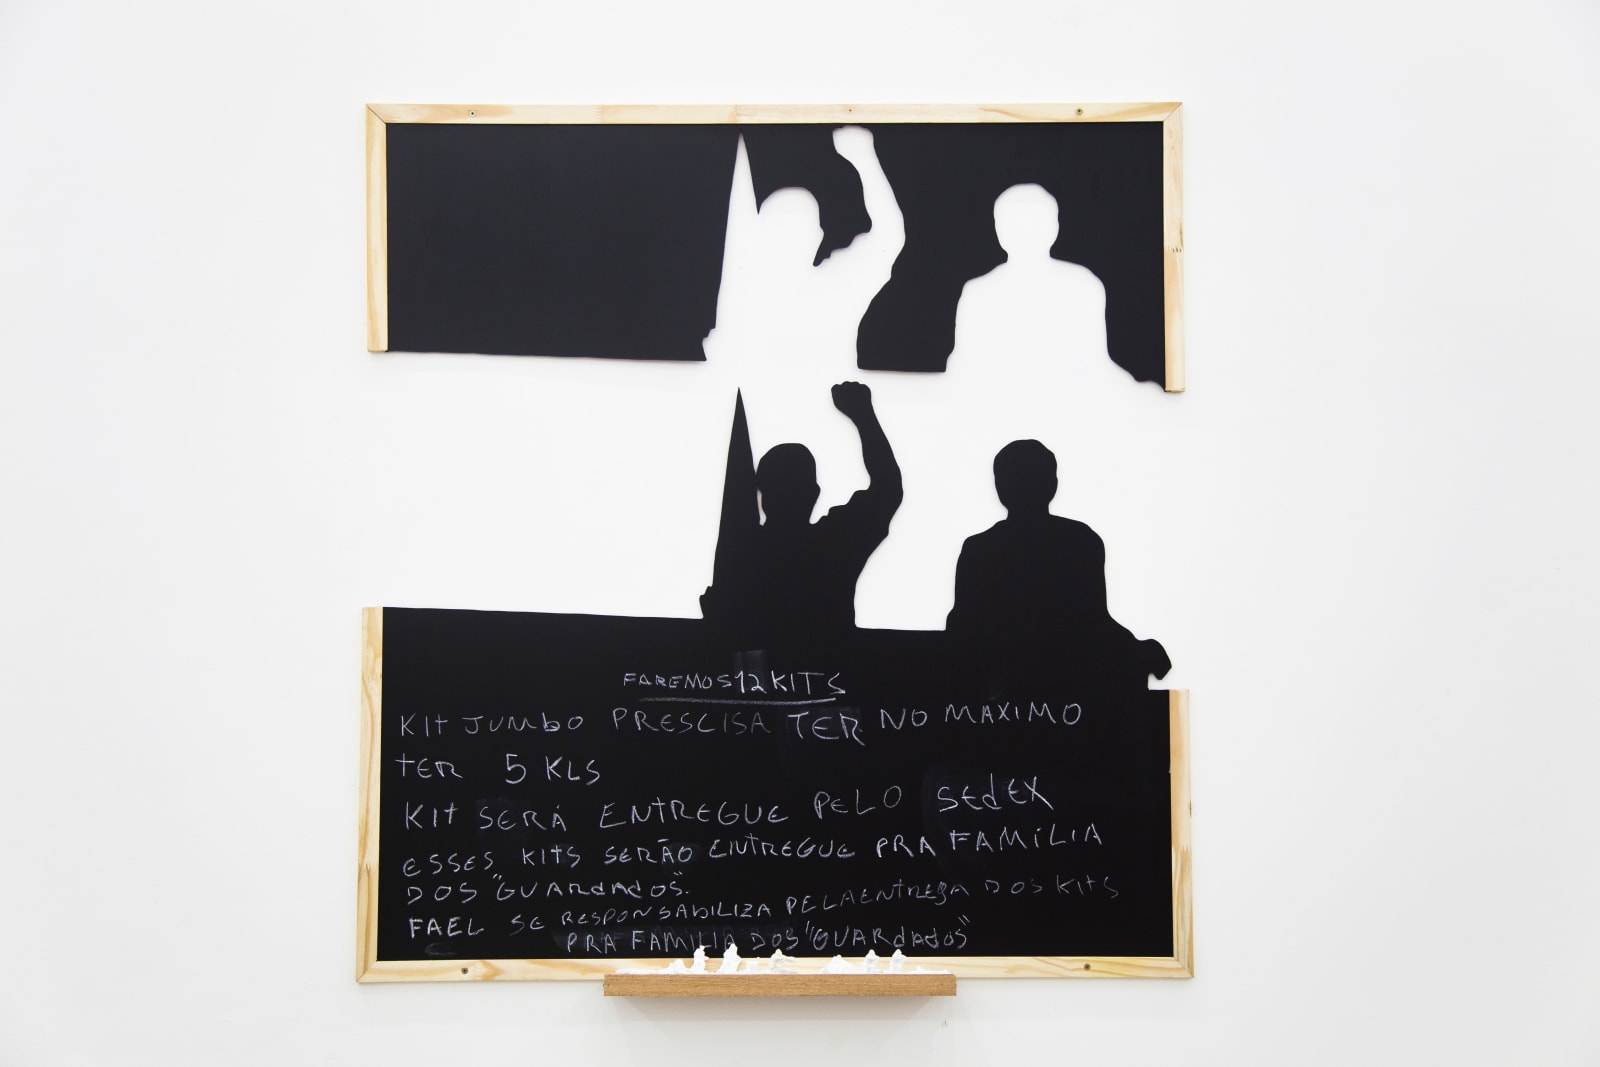 FAREMOS 12 KITS
KIT JUMBO PRESCISA TER NO MAXIMO
TER 5 KLS
KIT SERÁ ENTREGUE PELO SEDEX
ESSES KITS SERÃO ENTREGUE PRA FAMÍLIA
DOS "GUARDADOS".
FAEL SE RESPONSABILIZA PELA ENTREGA DOS KITS
PRA FAMILIA DOS "GUARDADOS"